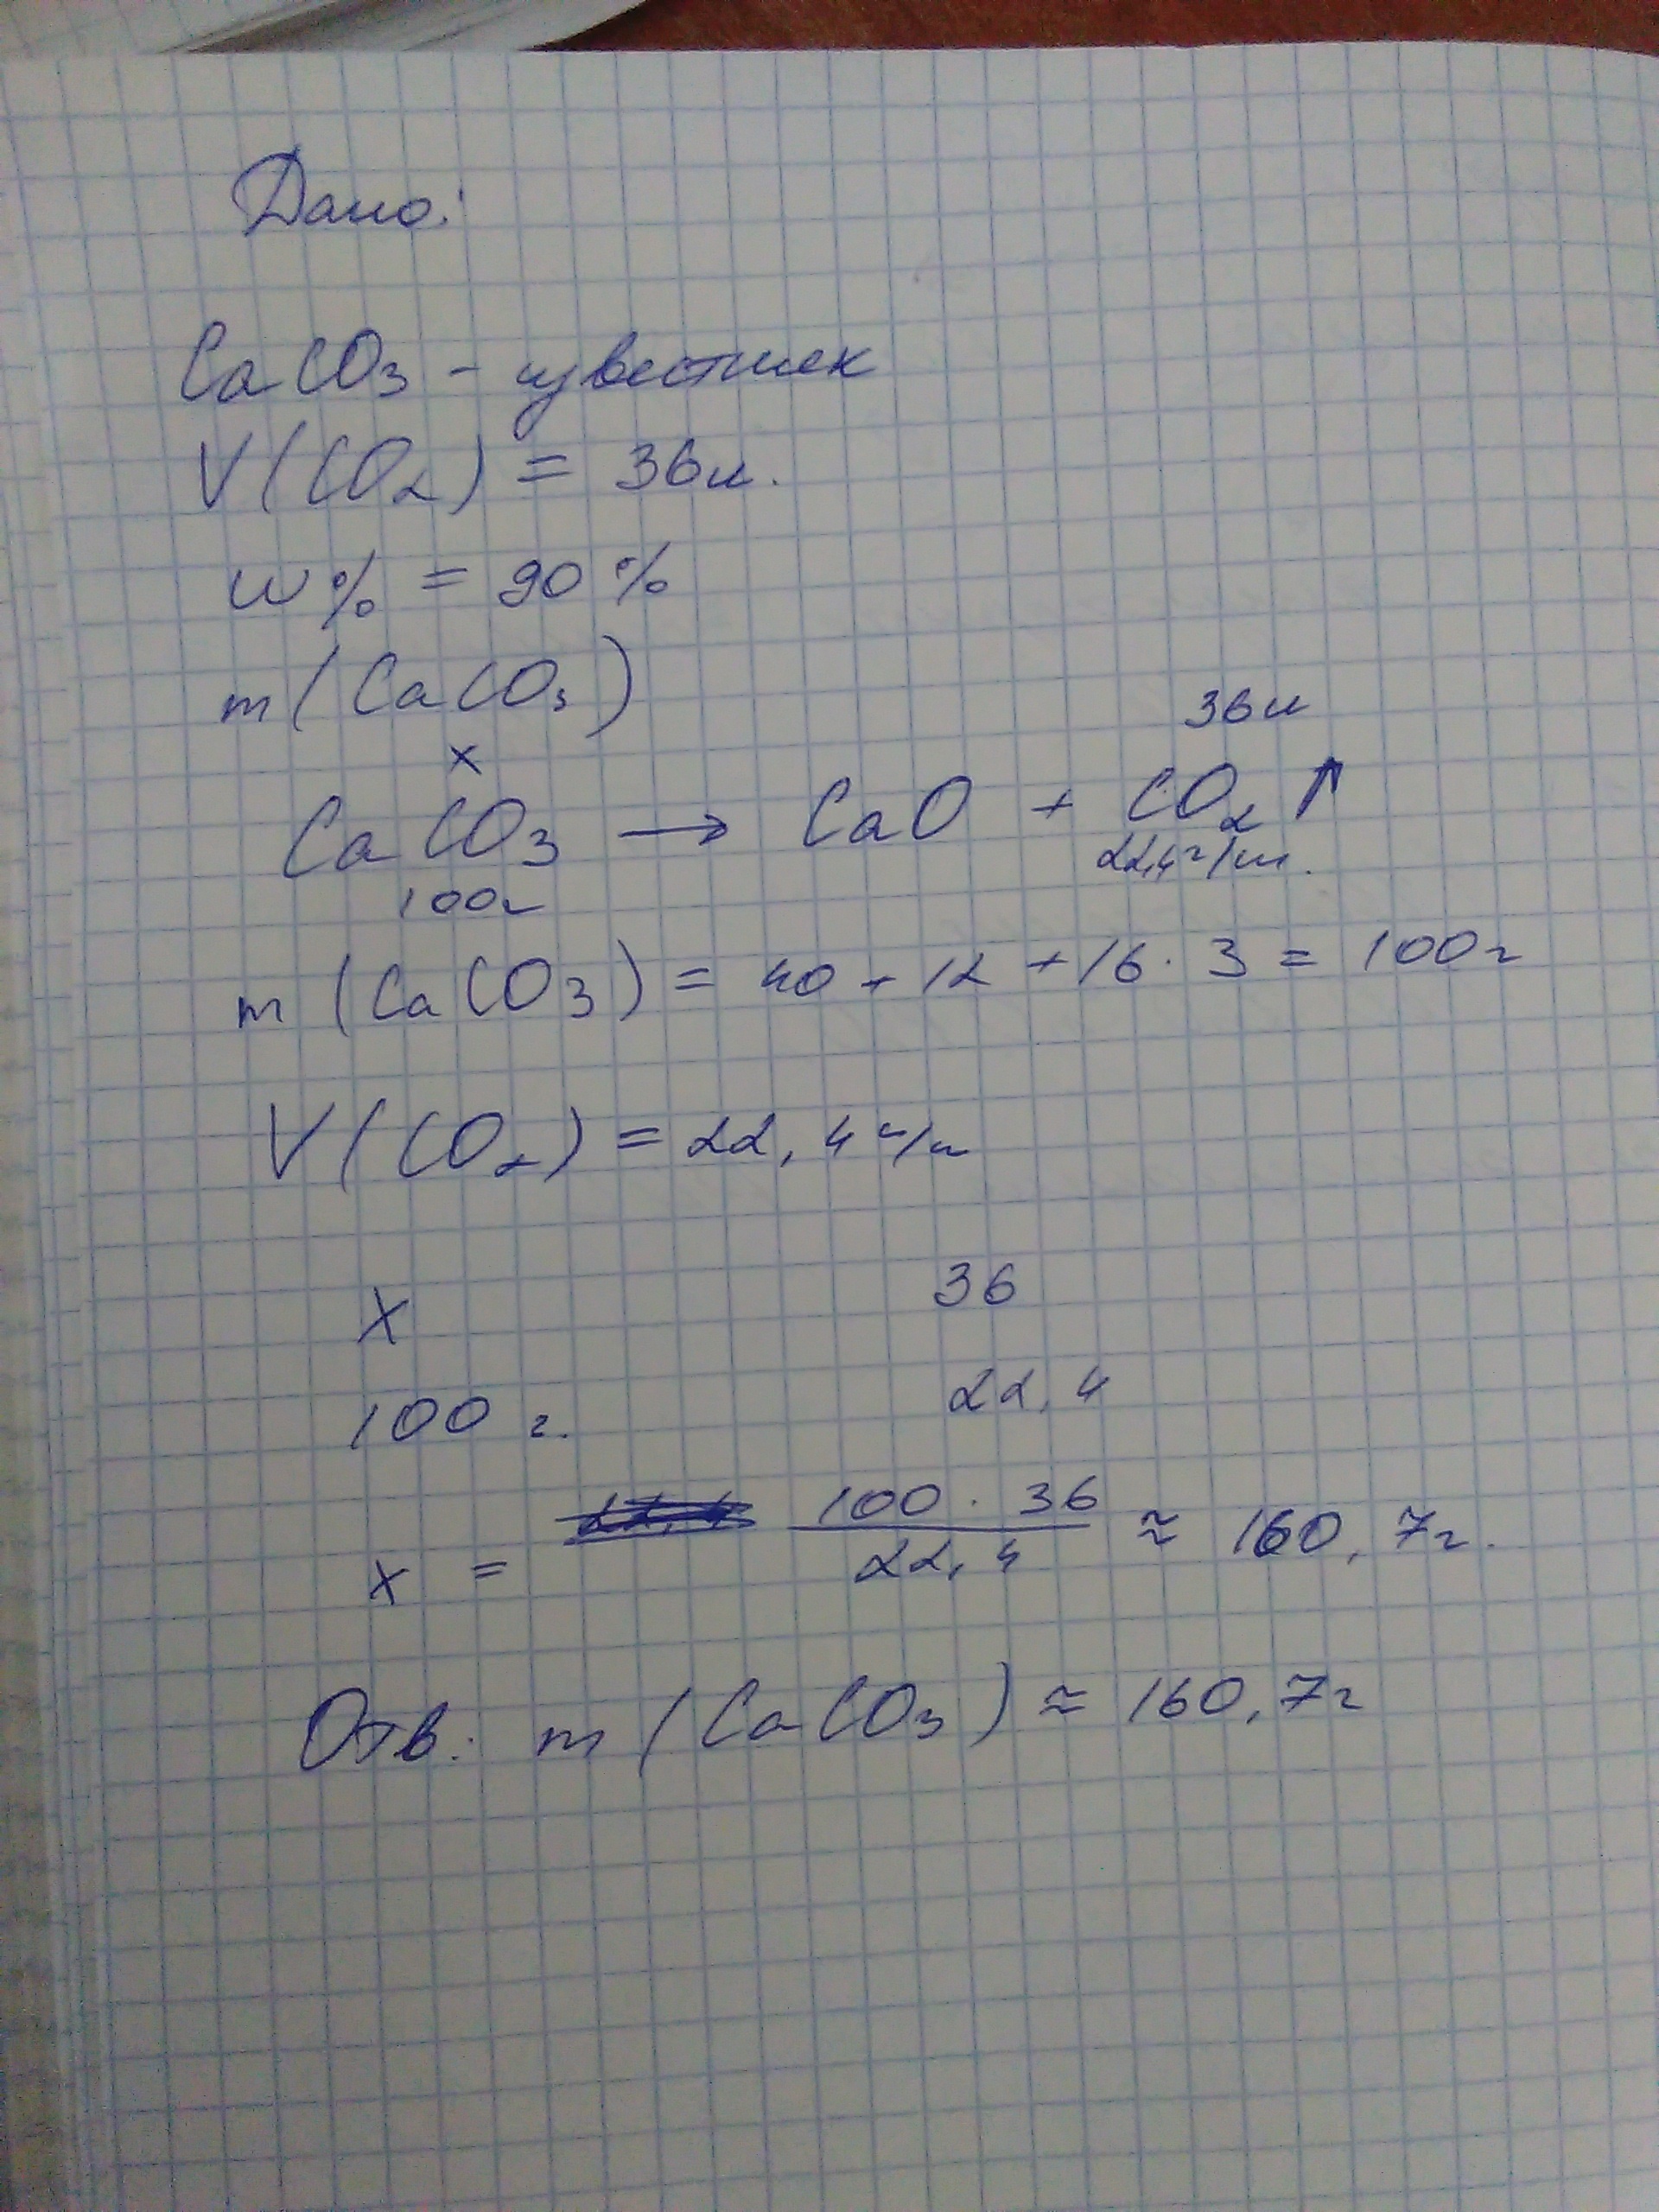 Дано:
CaCO3 - известняк
V(CO2) = 36л.
w% = 90%
m(CaCO3)
x 36л
CaCO3 → CaO + CO2↑
100г 22,4г/м.
m(CaCO3) = 40+12+16·3 = 100г
V(CO2) = 22,4г/м
X 36
100 г. 22,4
x = 100·36/22,4 ≈ 160,7г.
Отв: m(CaCO3) ≈ 160,7г